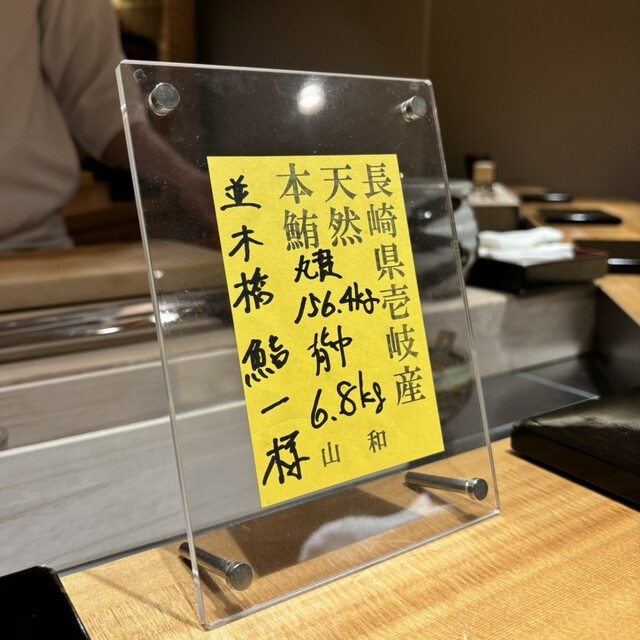 長崎県壱岐産
天然
本鮪
丸貫
156.4kg
背中
6.8kg
山和
並木橋 鮨一様